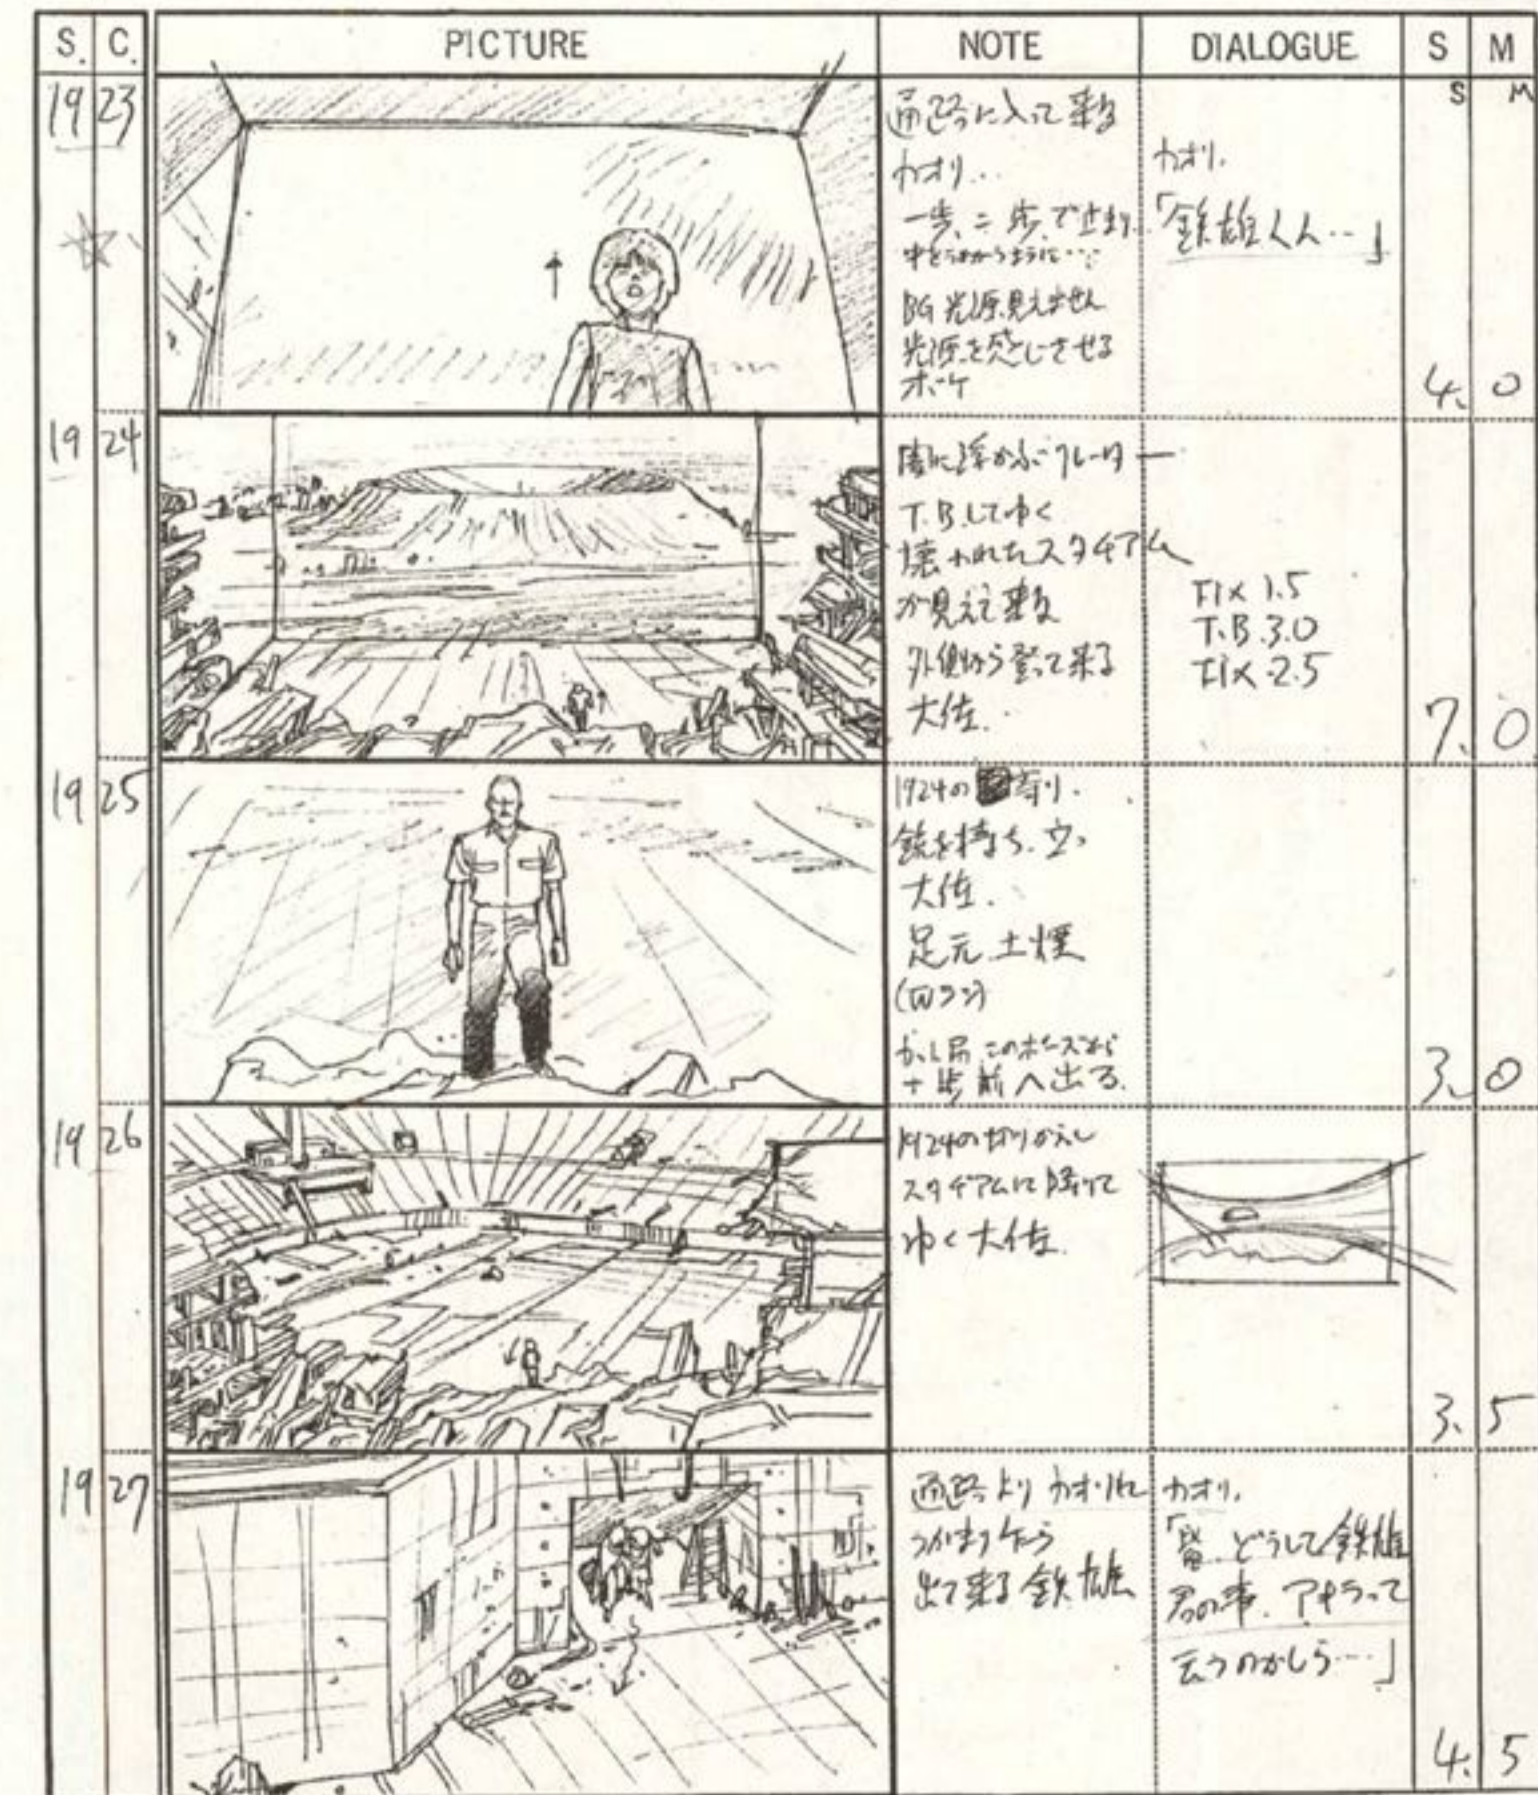 S. C. PICTURE NOTE DIALOGUE S M
S M
19 23
通路に入って来る
カオリ…
一歩、二歩、で止まり
BG 光源見えません
光源を感じさせる
ボケ
カオリ.
「鉄雄くん…」
4. 0
19 24
闇に浮かぶクレーター
T.B.してゆく
壊われたスタヂアム
が見えて来る
外側から登って来る
大佐.
Fix 1.5
T.B. 3.0
Fix 2.5
7. 0
19 25
1924の 寄り.
銃を持ち、立つ
大佐.
足元 土煙
前へ出る.
3. 0
19 26
1924の切りかえし
スタヂアムに降りて
ゆく大佐.
3. 5
19 27
通路より カオリに
つかまりながら
出て来る 鉄雄
カオリ.
「皆… どうして鉄雄
君の事、アキラって
云うのかしら…」
4. 5